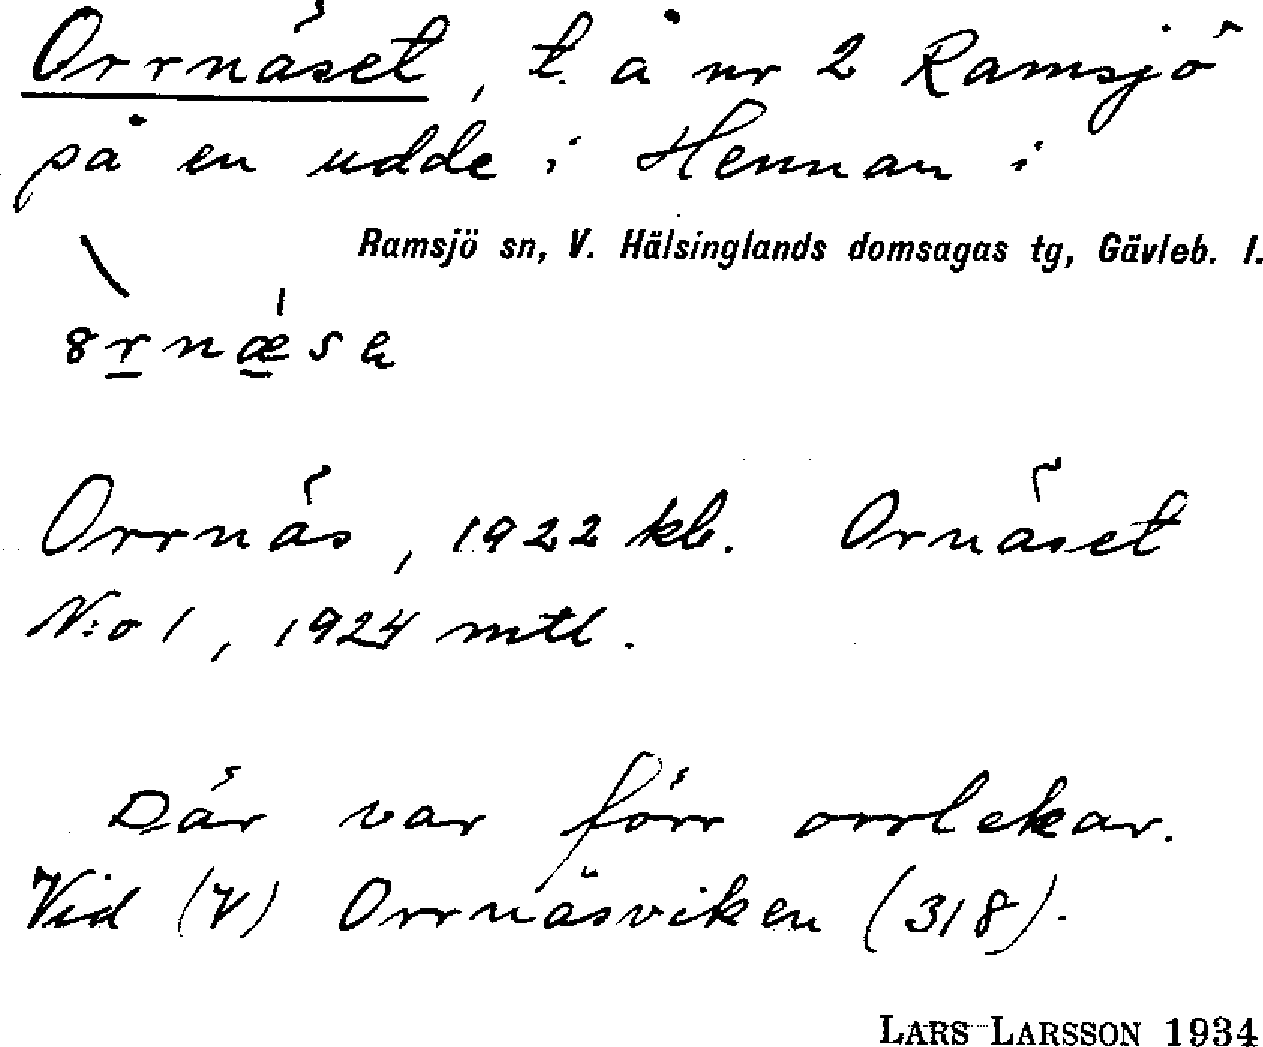 Orrnäset, t. å nr 2 Ramsjö
på en udde i Hennan i
Ramsjö sn, V. Hälsinglands domsagas tg, Gävleb. l.
Orrnäs, 1922 kb. Ornäset
N:o 1, 1924 mtl.
Där var förr orrlekar.
Vid (V) Orrnäsviken (318).
LARS LARSSON 1934